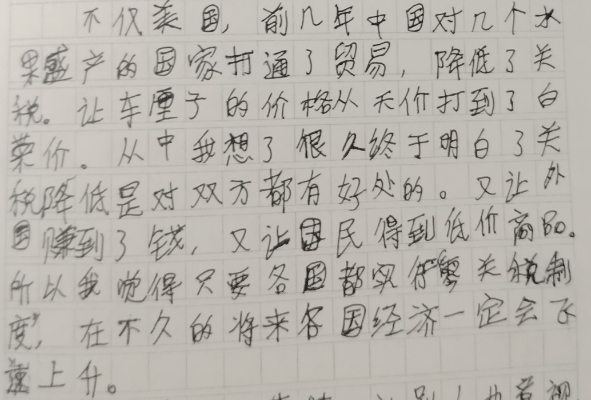 不仅美国，前几年中国对几个水
果盛产的国家打通了贸易，降低了关
税。让车厘子的价格从天价打到了白
菜价。从中我想了很久终于明白了关
税降低是对双方都有好处的。又让外
国赚到了钱，又让国民得到低价商品。
所以我觉得只要各国都实行"零关税制
度"，在不久的将来各国经济一定会飞
速上升。